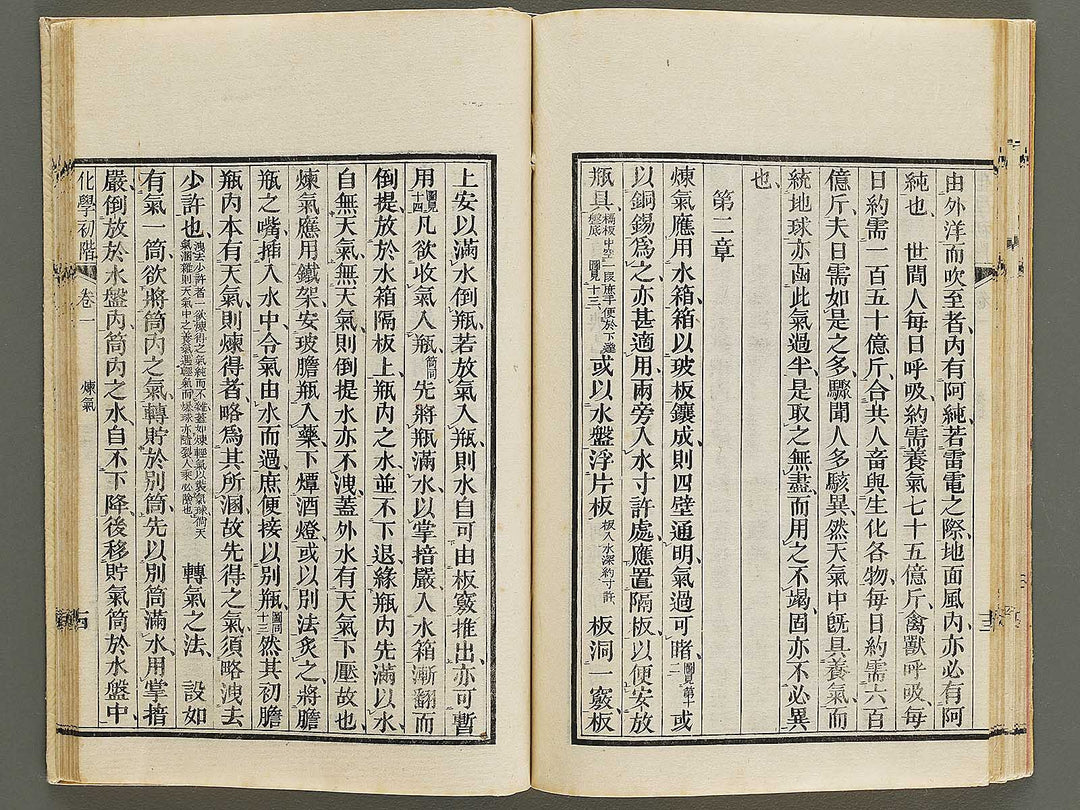 由外洋而吹至者、內有阿純、若雷電之際、地面風內、亦必有阿
純也、　世間人每日呼吸、約需養氣七十五億斤、禽獸呼吸、每
日約需一百五十億斤、合共人畜與生化各物、每日約需六百
億斤、夫日需如是之多、驟聞人多駭異、然天氣中旣具養氣、而
統地球亦函此氣過半、是取之無盡、而用之不竭、固亦不必異
也、
第二章
煉氣應用水箱、箱以玻板鑲成、則四壁通明、氣過可睹、圖見第十二或
以銅錫爲之、亦甚適用、兩旁入水寸許處、應置隔板、以便安放
瓶具、隔板中空一段、庶平便於下邊經底　圖見十三或以水盤浮片板、板入水深約寸許、板洞一竅、板
上安以滿水倒瓶、若放氣入瓶、則水自可由板竅推出、亦可暫
用、圖見十四凡欲收氣入瓶、筒同先將瓶滿水、以掌揞嚴、入水箱漸翻而
倒提、放於水箱隔板上、瓶內之水、並不下退、緣瓶內先滿以水、
自無天氣、無天氣、則倒提水亦不洩、蓋外水有天氣下壓故也、
煉氣應用鐵架、安玻膽瓶入藥、下燂酒燈、或以別法炙之、將膽
瓶之嘴、插入水中、令氣由水而過、庶便接以別瓶、圖同十三然其初膽
瓶內本有天氣、則煉得者、略爲其所溷、故先得之氣、須略洩去
少許也、洩去少許者、一欲煉得之氣純而不雜、蓋如煉輕氣以裝氣球、倘天氣溷雜、則天氣中之養氣遇輕氣而爆、球亦隨裂、人乘必險也、　轉氣之法、　設如
有氣一筒、欲將筒內之氣、轉貯於別筒、先以別筒滿水、用掌揞
嚴、倒放於水盤內、筒內之水、自不下降、後移貯氣筒於水盤中、
化學初階　卷一　煉氣